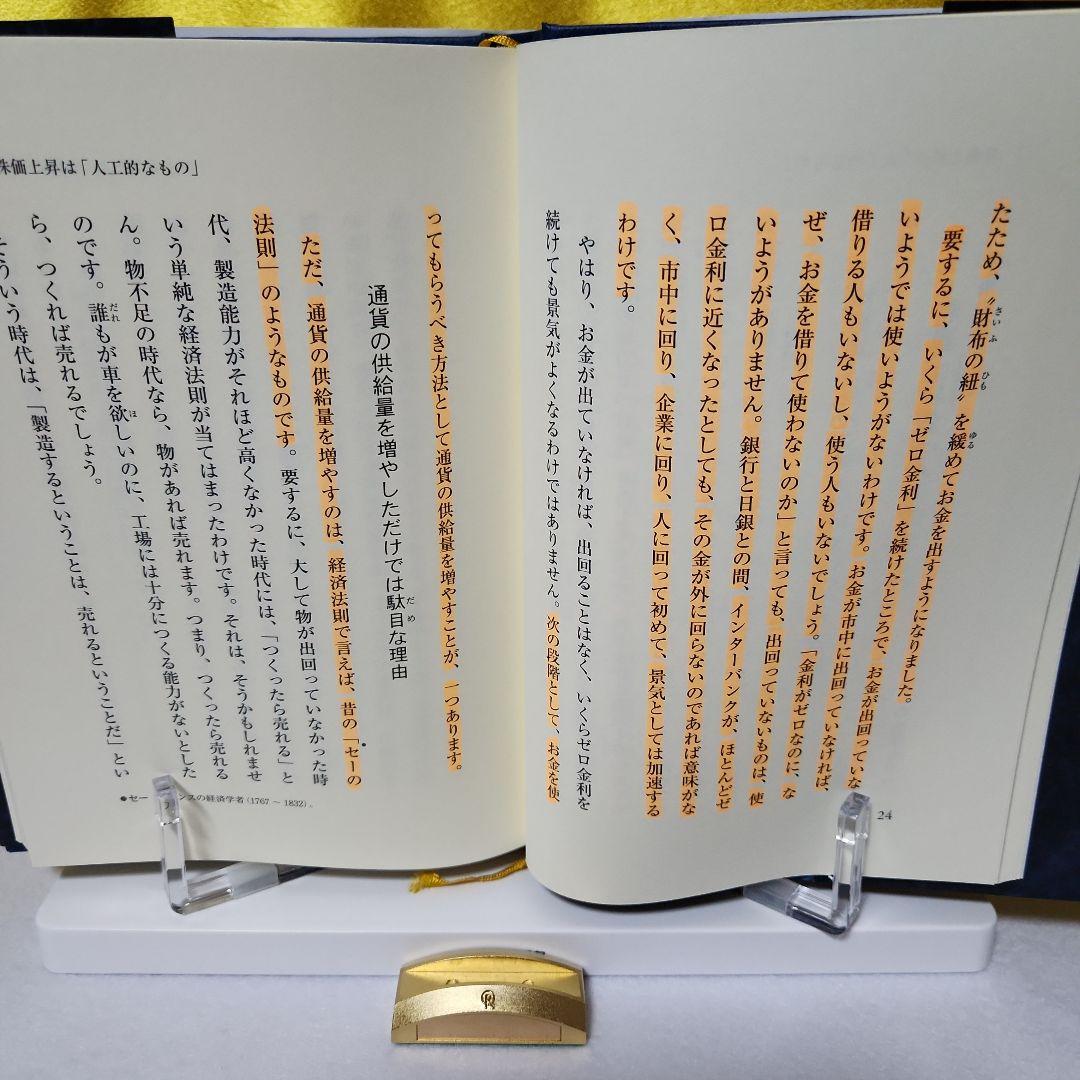 たため、〝財布の紐〟を緩めてお金を出すようになりました。
要するに、いくら「ゼロ金利」を続けたところで、お金が出回っていな
いようでは使いようがないわけです。お金が市中に出回っていなければ、
借りる人もいないし、使う人もいないでしょう。「金利がゼロなのに、な
ぜ、お金を借りて使わないのか」と言っても、出回っていないものは、使
いようがありません。銀行と日銀との間、インターバンクが、ほとんどゼ
ロ金利に近くなったとしても、その金が外に回らないのであれば意味がな
く、市中に回り、企業に回り、人に回って初めて、景気としては加速する
わけです。
やはり、お金が出ていなければ、出回ることはなく、いくらゼロ金利を
続けても景気がよくなるわけではありません。次の段階として、お金を使
24
株価上昇は「人工的なもの」
ってもらうべき方法として通貨の供給量を増やすことが、一つあります。
通貨の供給量を増やしただけでは駄目な理由
ただ、通貨の供給量を増やすのは、経済法則で言えば、昔の「セーの
法則」のようなものです。要するに、大して物が出回っていなかった時
代、製造能力がそれほど高くなかった時代には、「つくったら売れる」と
いう単純な経済法則が当てはまったわけです。それは、そうかもしれませ
ん。物不足の時代なら、物があれば売れます。つまり、つくったら売れる
のです。誰もが車を欲しいのに、工場には十分につくる能力がないとした
ら、つくれば売れるでしょう。
そういう時代は、「製造するということは、売れるということだ」とい
●セー ンスの経済学者(1767～1832)。